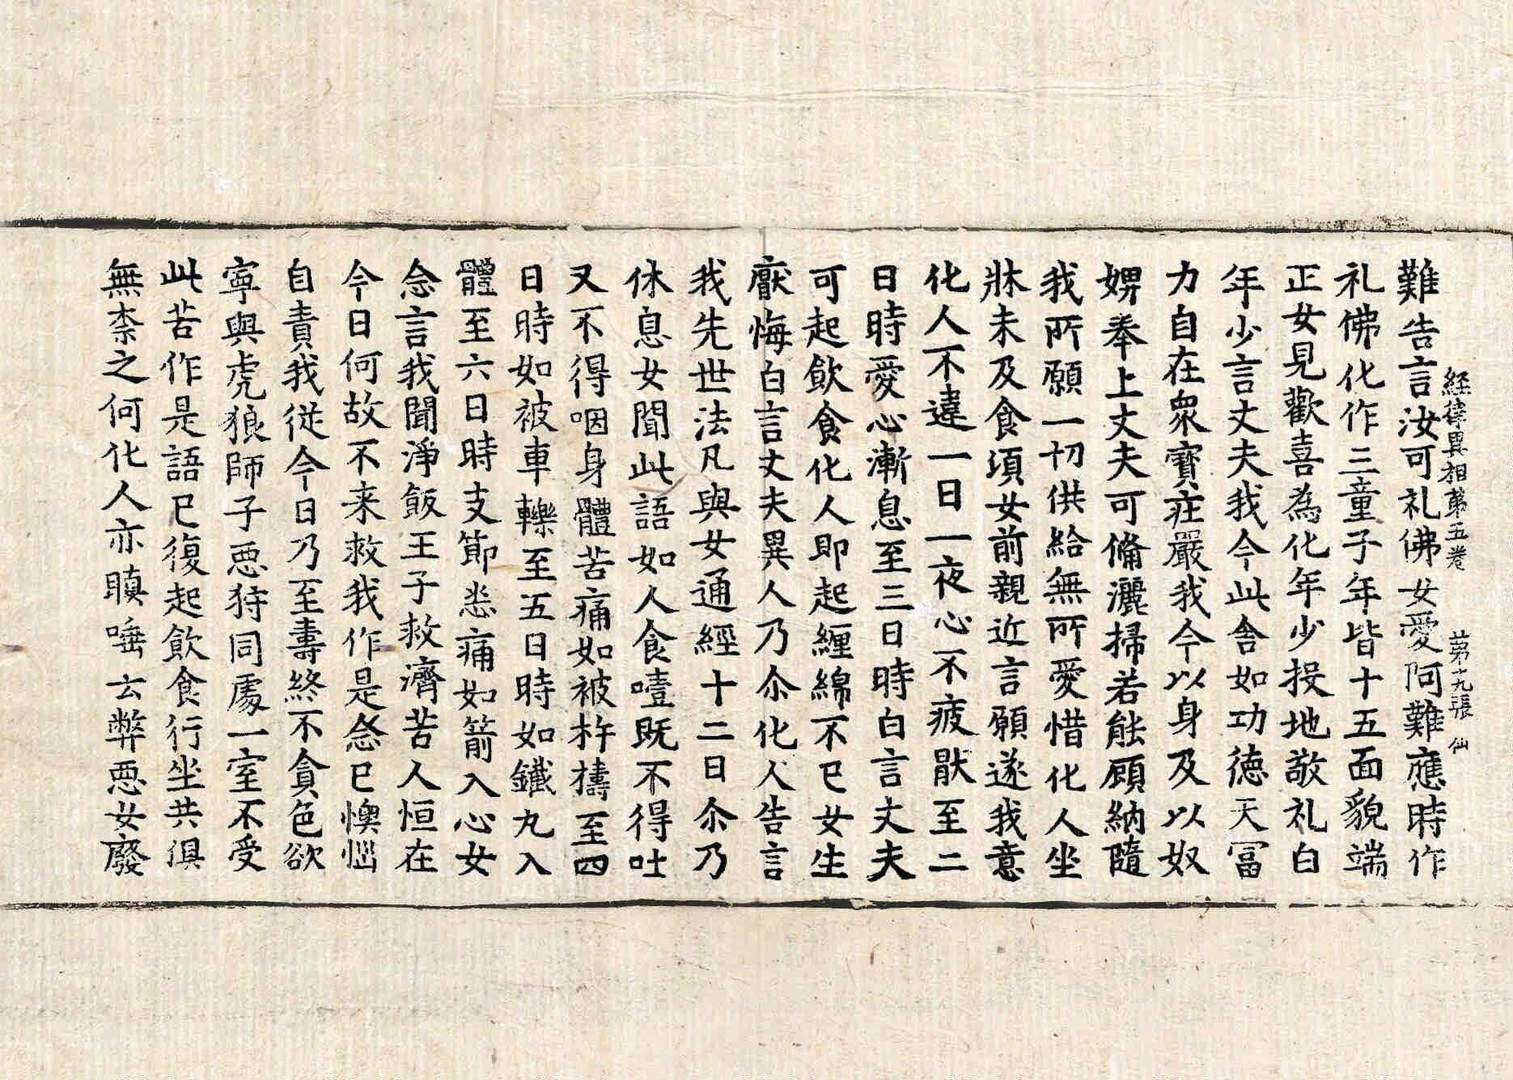 経律異相第五卷 第十九張 仙
難告言汝可礼佛女愛阿難應時作
礼佛化作三童子年皆十五面貌端
正女見歡喜為化年少投地敬礼白
年少言丈夫我今此舍如功德天冨
力自在衆寶莊嚴我今以身及以奴
婢奉上丈夫可俻灑掃若能顧納隨
我所願一切供給無所愛惜化人坐
牀未及食頃女前親近言願遂我意
化人不違一日一夜心不疲猒至二
日時愛心漸息至三日時白言丈夫
可起飲食化人即起纏綿不已女生
厭悔白言丈夫異人乃尒化人告言
我先世法凡與女通經十二日尒乃
休息女聞此語如人食噎既不得吐
又不得咽身體苦痛如被杵擣至四
日時如被車轢至五日時如鐵丸入
體至六日時支節悉痛如箭入心女
念言我聞淨飯王子救濟苦人恒在
今日何故不来救我作是念已懊惱
自責我従今日乃至壽終不貪色欲
寧與虎狼師子惡狩同處一室不受
此苦作是語已復起飲食行坐共俱
無柰之何化人亦瞋唾云弊惡女廢